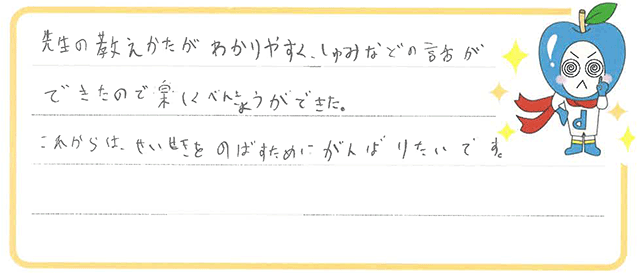 先生の教えかたがわかりやすく、しゅみなどの話が
できたので楽しくべんきょうができた。
これからは、せいせきをのばすためにがんばりたいです。
d